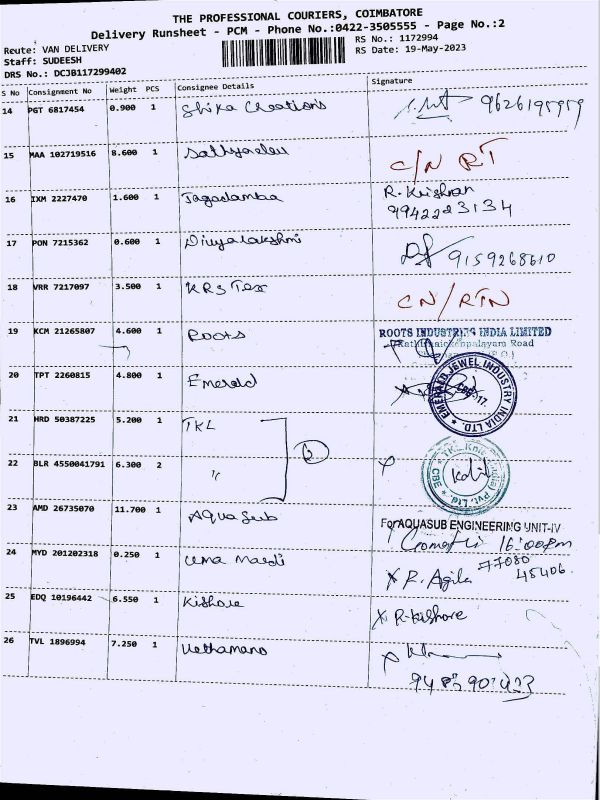 THE PROFESSIONAL COURIERS, COIMBATORE
Delivery Runsheet - PCM - Phone No.:0422-3505555 - Page No.:2
Reute: VAN DELIVERY
RS No.: 1172994
Staff: SUDEESH
RS Date: 19-May-2023
DRS No.: DCJB117299402
S No Consignment No Weight PCS Consignee Details Signature
14 PGT 6817454 0.900 1 Shika Creations 9626195959
15 MAA 102719516 8.600 1 C/N RT
16 IXM 2227470 1.600 1 Jagadamba R. Krishnan
9942223134
17 PON 7215362 0.600 1 Divyalakshmi 9159268610
18 VRR 7217097 3.500 1 KRS Tex CN/RTN
19 KCM 21265807 4.600 1 Roots ROOTS INDUSTRIES INDIA LIMITED
Road
20 TPT 2260815 4.800 1 Emerald EMERALD JEWEL INDUSTRY INDIA LTD.
21 HRD 50387225 5.200 1 TKL
22 BLR 4550041791 6.300 2 " CBE
23 AMD 26735070 11.700 1 Aqua Sub For AQUASUB ENGINEERING UNIT-IV
16:00pm
24 MYD 201202318 0.250 1 Uma X R. Agila 77080
45406
25 EDQ 10196442 6.550 1 Kishore X R-kishore
26 TVL 1896994 7.250 1